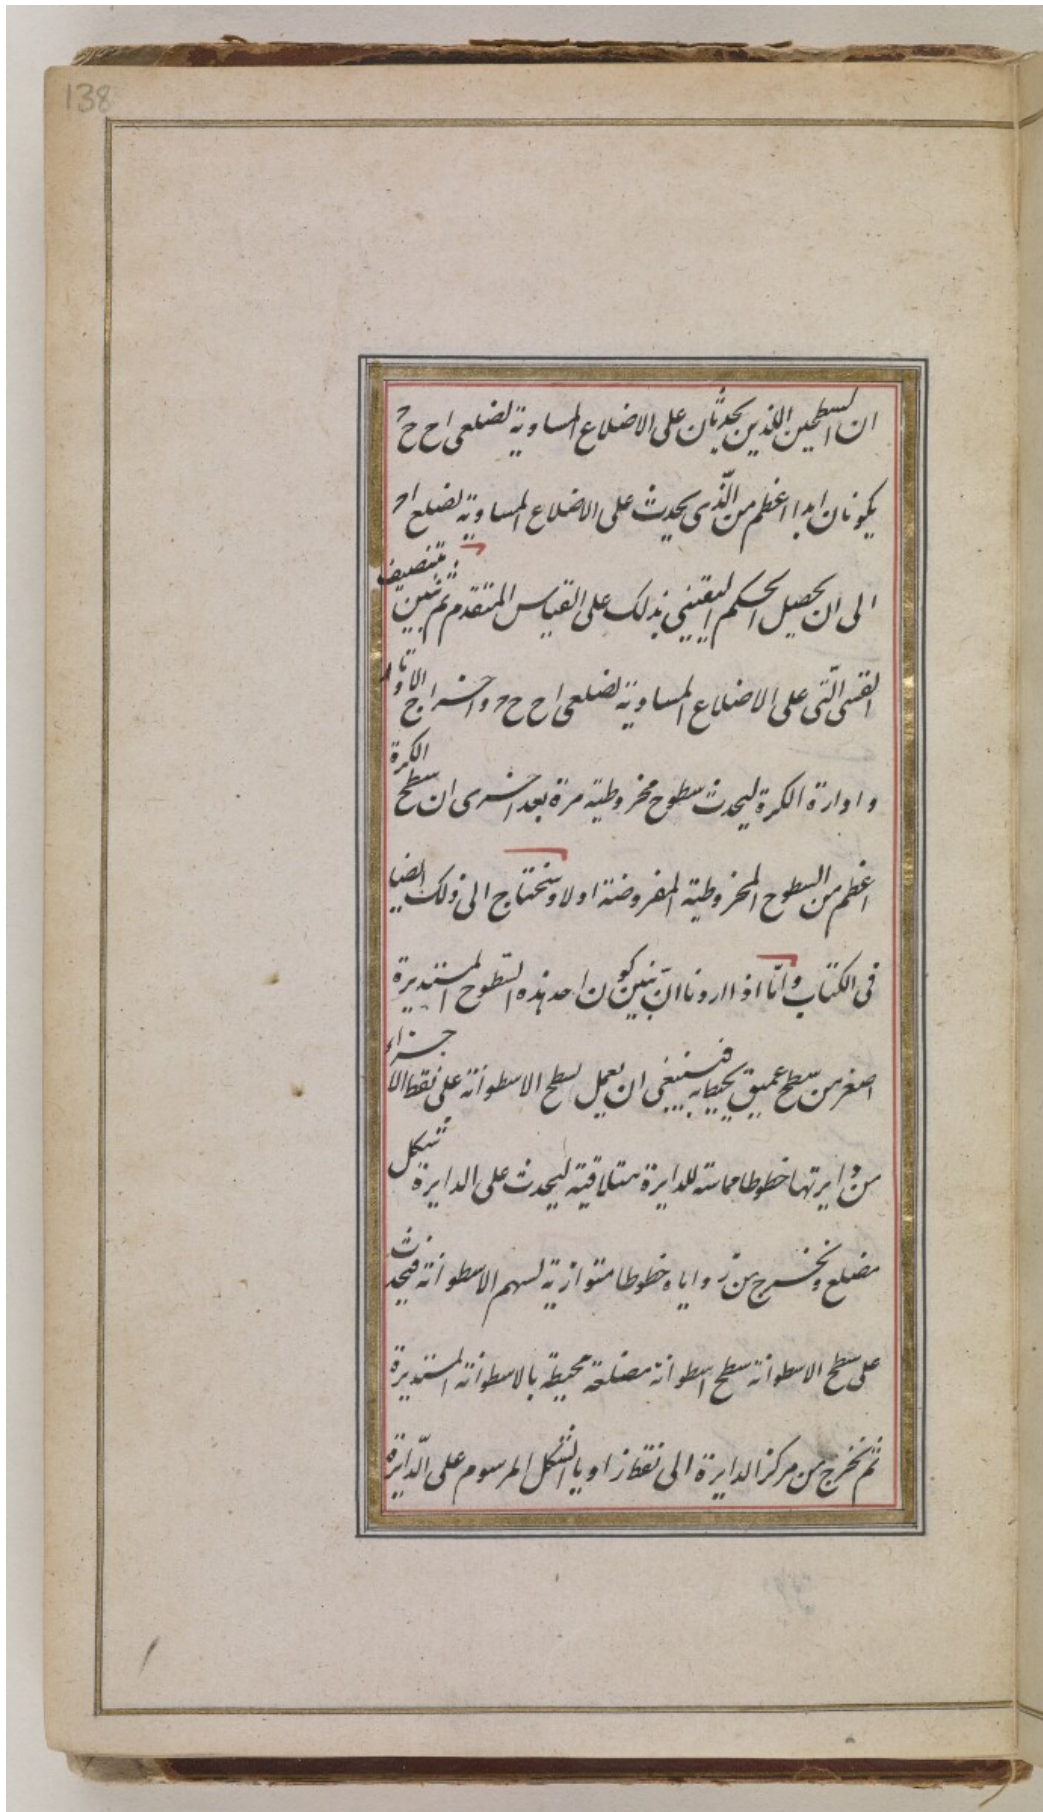 138
ان السطحين اللذين يحدثان على الاضلاع المساوية لضلعى اح حـ
يكونان ابدا اعظم من الّذى يحدث على الاضلاع المساوية لضلع اـ
الى ان يحصل الحكم اليقينى بذلك على القياس المتقدم ثم نبين بتنصيف
القسى الّتى على الاضلاع المساوية لضلعى اح حـ واخراج الاوتار
وادارة الكرة ليحدث سطوح مخروطية مرة بعد اخرى ان سطح الكرة
اعظم من السطوح المخروطية المفروضة اولا وسنحتاج الى ذلك ايضا
فى الكتاب وانّا اذا اردنا ان نبيّن كون احد هذه السّطوح المستديرة
اصغر من سطح عميق يحيط به فينبغى ان نعمل لسطح الاسطوانة على نقط الاجزاء
من دايرتها خطوطا مماسة للدايرة متلاقية ليحدث على الدايرة شكل
مضلع ونخرج من زواياه خطوطا متوازية لسهم الاسطوانة فيحدث
على سطح الاسطوانة سطح اسطوانة مضلعة محيطة بالاسطوانة المستديرة
ثم نخرج من مركز الدايرة الى نقط زاويا الشكل المرسوم على الدّايرة